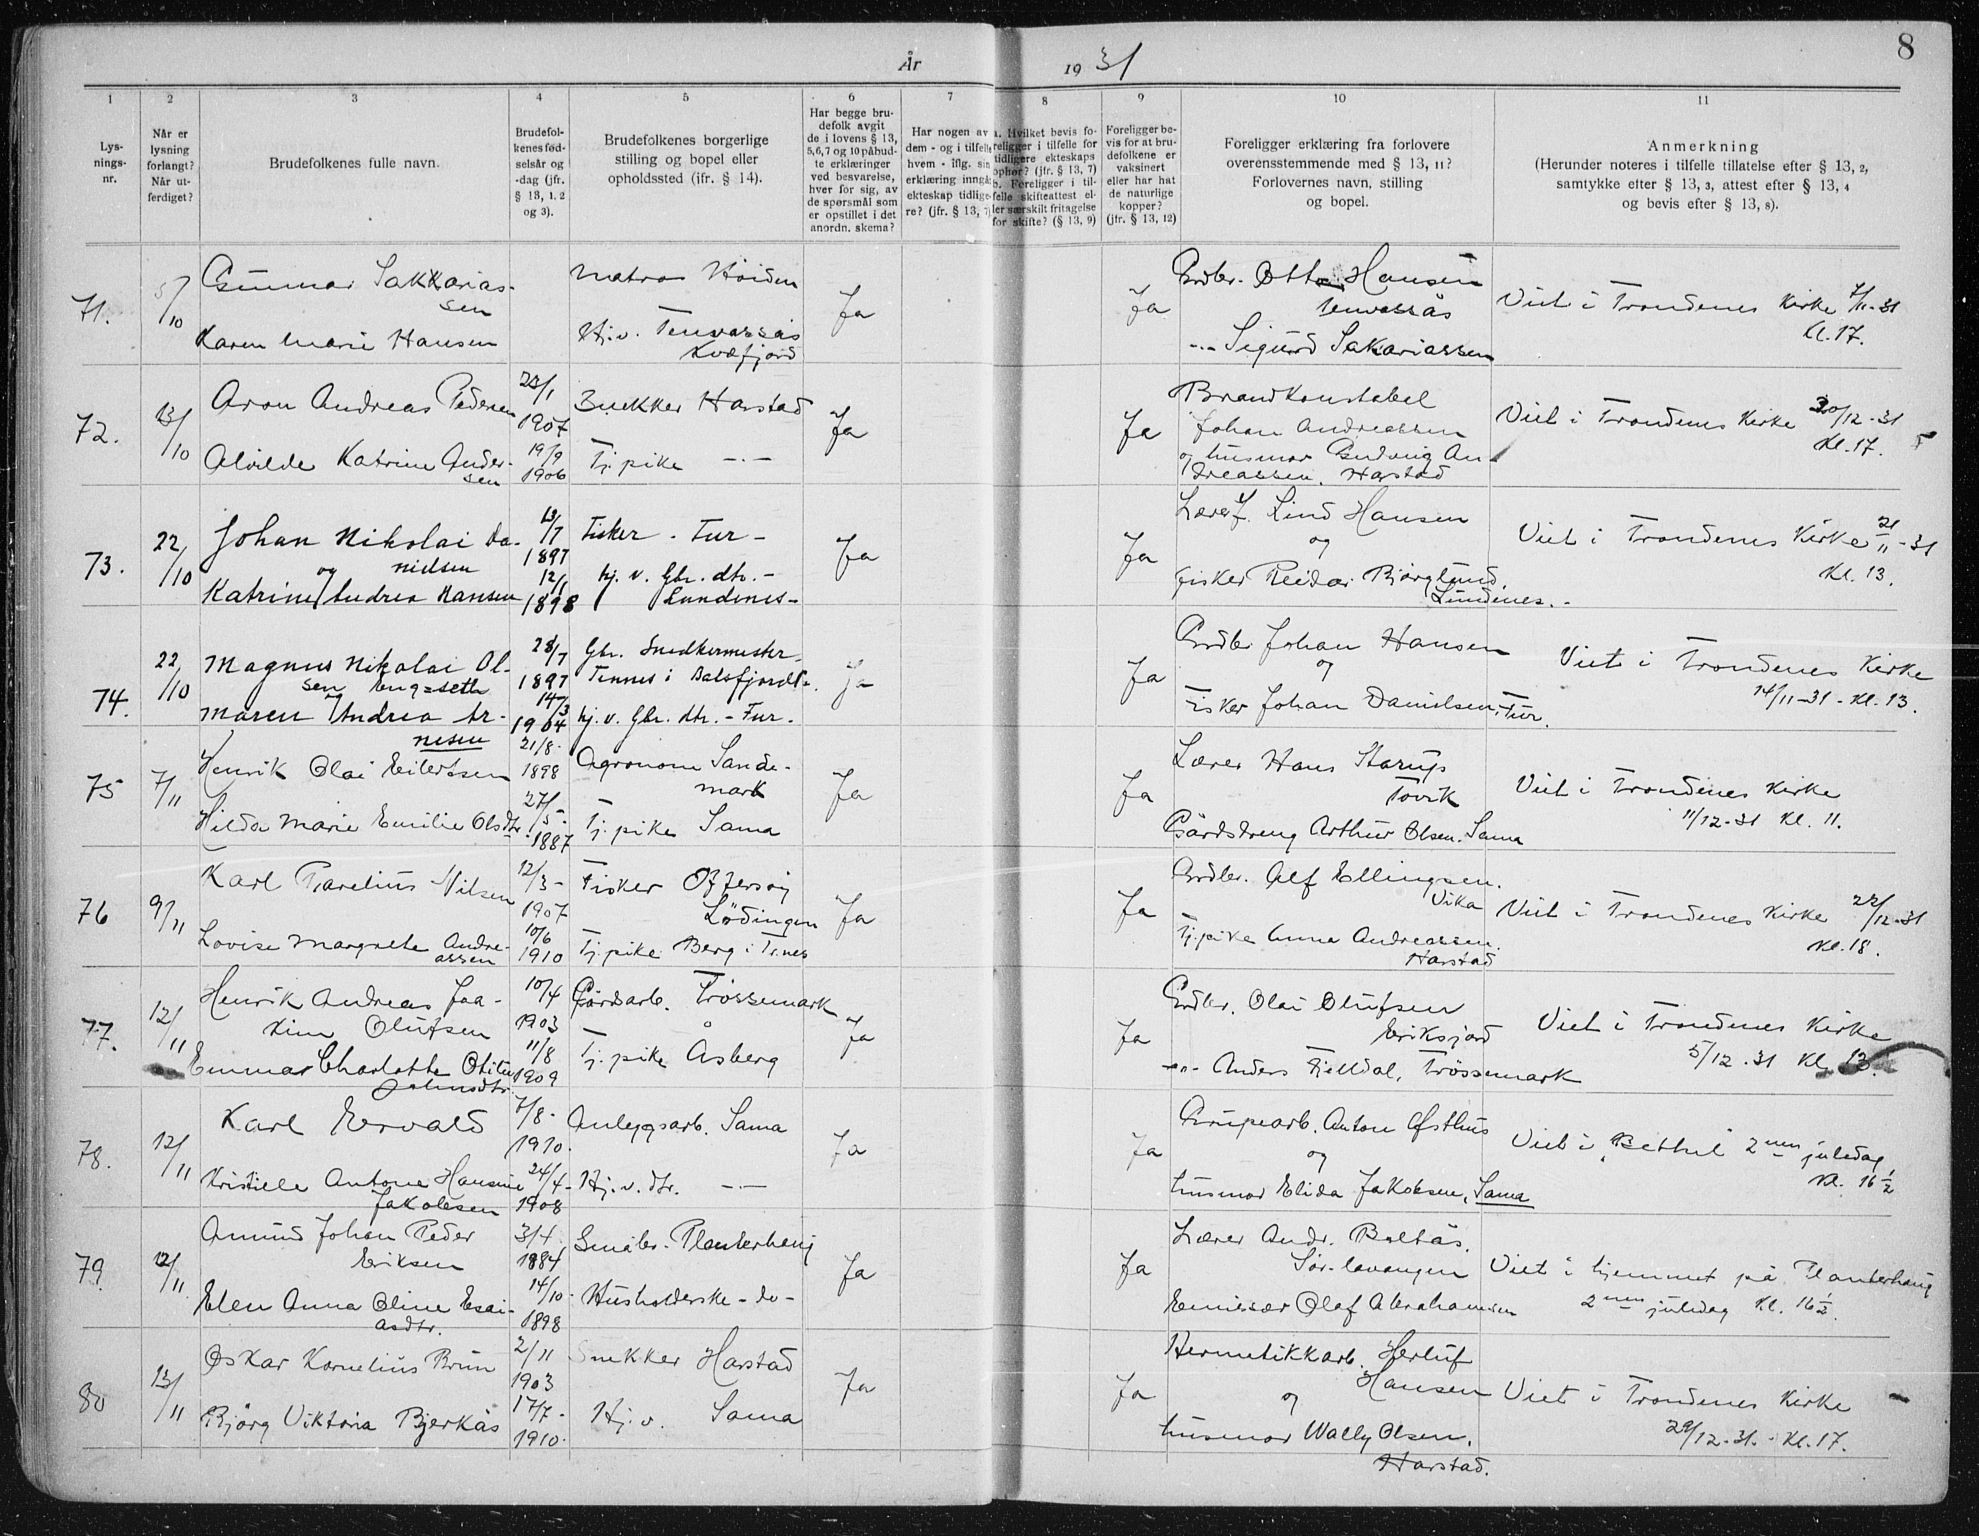 År 1931
8
1
2
3
4
5
6
7
8
9
10
11
Lys-
nings-
nr.
Når er
lysning
forlangt?
Når ut-
ferdiget?
Brudefolkenes fulle navn.
Brudefol-
kenes fød-
selsår og
-dag (jfr.
§ 13, 1. 2
og 3).
Brudefolkenes borgerlige
stilling og bopel eller
opholdssted (ifr. § 14).
Har begge bru-
defolk avgit
de i lovens § 13,
5,6,7 og 10 påbud-
te erklæringer
ved besvarelse,
hver for sig, av
de spørsmål som
er opstillet i det
anordn. skema?
Har nogen av
dem - og i tilfelle
hvem - iflg. sin
erklæring inngå
ekteskap tidlige-
re? (jfr. § 13, 7)
a. Hvilket bevis fo-
religger i tilfelle for
tidligere ekteskaps
ophør? (jfr. § 13, 7)
b. Foreligger i til-
felle skifteattest el-
ler særskilt fritagelse
for skifte? (§ 13, 9)
Foreligger be-
vis for at bru-
defolkene er
vaksinert
eller har hat
de naturlige
kopper?
(jfr. § 13, 12)
Foreligger erklæring fra forlovere
overensstemmende med § 13, 11?
Forlovernes navn, stilling
og bopel.
Anmerkning
(Herunder noteres i tilfelle tillatelse efter § 13, 2,
samtykke efter § 13, 3, attest efter § 13, 4
og bevis efter § 13, 8).
71.
5/10
Gunnar Sakkarias-
sen
Karen Marie Hansen
Matros Höiden
Hj.v. Tenvassås
Kvæfjord
Ja
Ja
Grdbr. Otto Hansen
Tenvassås
-"- Sigurd Sakariassen
Viet i Trondenes Kirke 7/11-31
Kl. 17.
72.
13/10
Aron Andreas Pedersen
Alvilde Katrine Ander-
sen
23/1
1907
19/9
1906
Snekker Harstad
Tj.pike -"-
Ja
Ja
Brandkonstabel
Johan Andreassen
og husmor Gudvig An-
dreassen, Harstad
Viet i Trondenes Kirke 30/12-31
Kl. 17.
73.
22/10
Johan Nikolai Da-
nielsen
og
Katrine Andrea Hansen
13/7
1897
12/1
1898
Fisker - Fur -
hj. v. Gbr. dtr. -
Lundenes -
Ja
Ja
Lærer J. Lind Hansen
og
fisker Reidar Bjørglund.
Lundenes.-
Viet i Trondenes Kirke 21/11-31
Kl. 13.
74.
22/10
Magnus Nikolai Ol-
sen Engseth
og
Maren Andrea Ar-
nesen
28/7
1897
14/3
1904
Gbr. Snedkermester
Tennes i Balsfjord
hj. v. Gbr. dtr. - Fur.
ja
Ja
Grdbr Johan Hansen
og
Fisker Johan Danielsen, Fur.
Viet i Trondenes Kirke
14/11-31 - Kl. 13.
75
7/11
Henrik Olai Eilertsen
Hilda Marie Emilie Olsdtr
21/8-
1898
27/5-
1887
Agronom Sande-
mark
Tj.pike Sama
Ja
Ja
Lærer Hans Starup
Tovik
Gårdsdreng Arthur Olsen. Sama
Viet i Trondenes Kirke
11/12-31 Kl. 11.
76
9/11
Karl Parelius Nilsen
Lovise Margrete Andre-
assen
12/3-
1907
10/6
1910
Fisker Offersøy
Lødingen
Tj.pike Berg i T.nes
Ja
Ja
Grdbr. Alf Ellingsen.
Vika
Tj.pike Anna Andreassen.
Harstad
Viet i Trondenes Kirke 22/12-31
Kl. 18.
77.
12/11
Henrik Andreas Joa-
kim Olufsen
Emma Charlotte Otilie
Johnsdtr.
10/4
1903
11/8
1909
Gårdsarb. Trøssemark
Tj.pike Åsberg
Ja
Ja
Grdbr. Olai Olufsen
Eriksjord
-"- Anders Fjelldal, Trøssemark
Viet i Trondenes Kirke
5/12-31 Kl. 13.
78.
12/11
Karl Ervald
Kristielle Antone Hansine
Jakobsen
7/8-
1910.
24/4-
1908
Anleggsarb. Sama
Hj.v. dtr. -"-
Ja
Ja
Grupearb. Anton Østhus
og
husmor Elida Jakobsen, Sama
Viet i "Bethel" 2nen juledag
Kl. 16½
79.
12/11
Amund Johan Peder
Eriksen
Elen Anna Oline Esai-
asdtr.
3/4
1884
14/10-
1898
Småbr. Planterhaug
Husholderske - do -
Ja
Ja
Lærer Andr. Baltås.
Sør-lavangen
Emissær Olaf Abrahamsen
Viet i hjemmet på Planterhaug
2nen juledag Kl. 16½.
80
13/11
Oskar Kornelius Brun
Bjørg Viktoria Bjerkås
2/11
1903
17/7-
1910.
Snekker Harstad
Hj.v. Sama
Ja
Ja
Hermetikkarb. Herluf
Hansen
og
husmor Wally Olsen.
Harstad.
Viet i Trondenes Kirke
29/12-31. - Kl. 17.